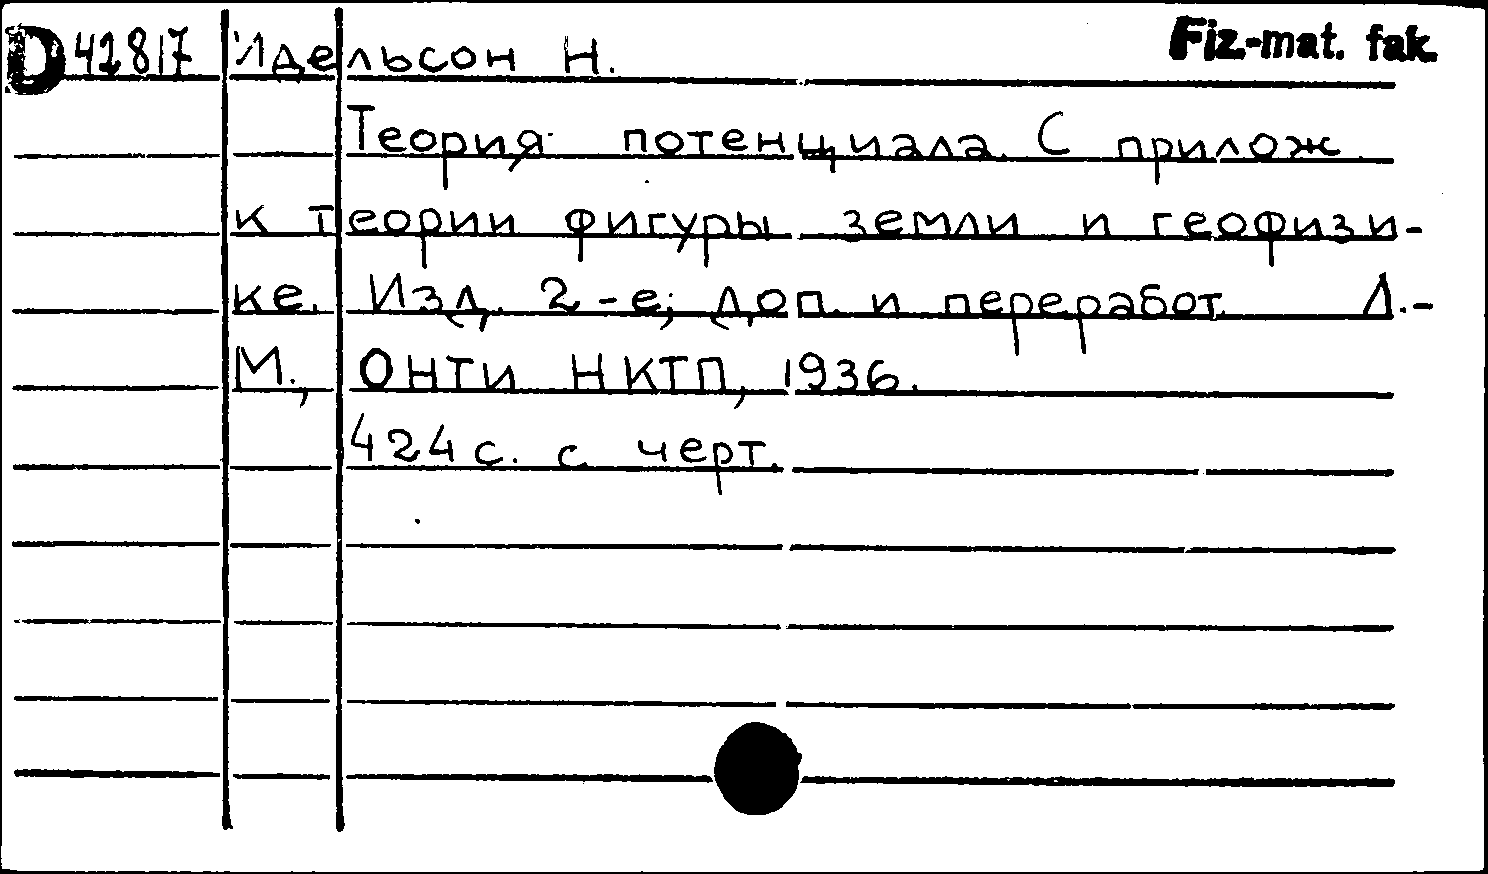 D 42817 Идельсон Н. Fiz.-mat. fak.
Теория потенциала. С прилож.
к теории фигуры земли и геофизи-
ке. Изд. 2-е; доп. и переработ. Л.-
М., ОНТИ НКТП, 1936.
424 с. с черт.